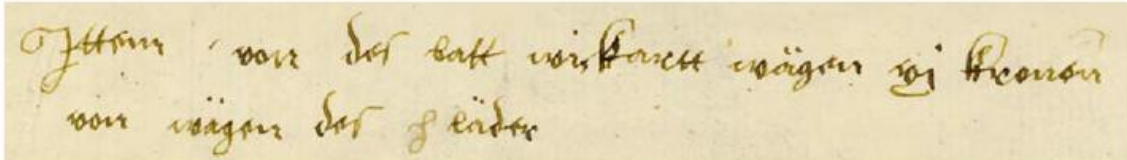 Ittem von des batt wickartt wägen vj kronen
von wägen des h läder